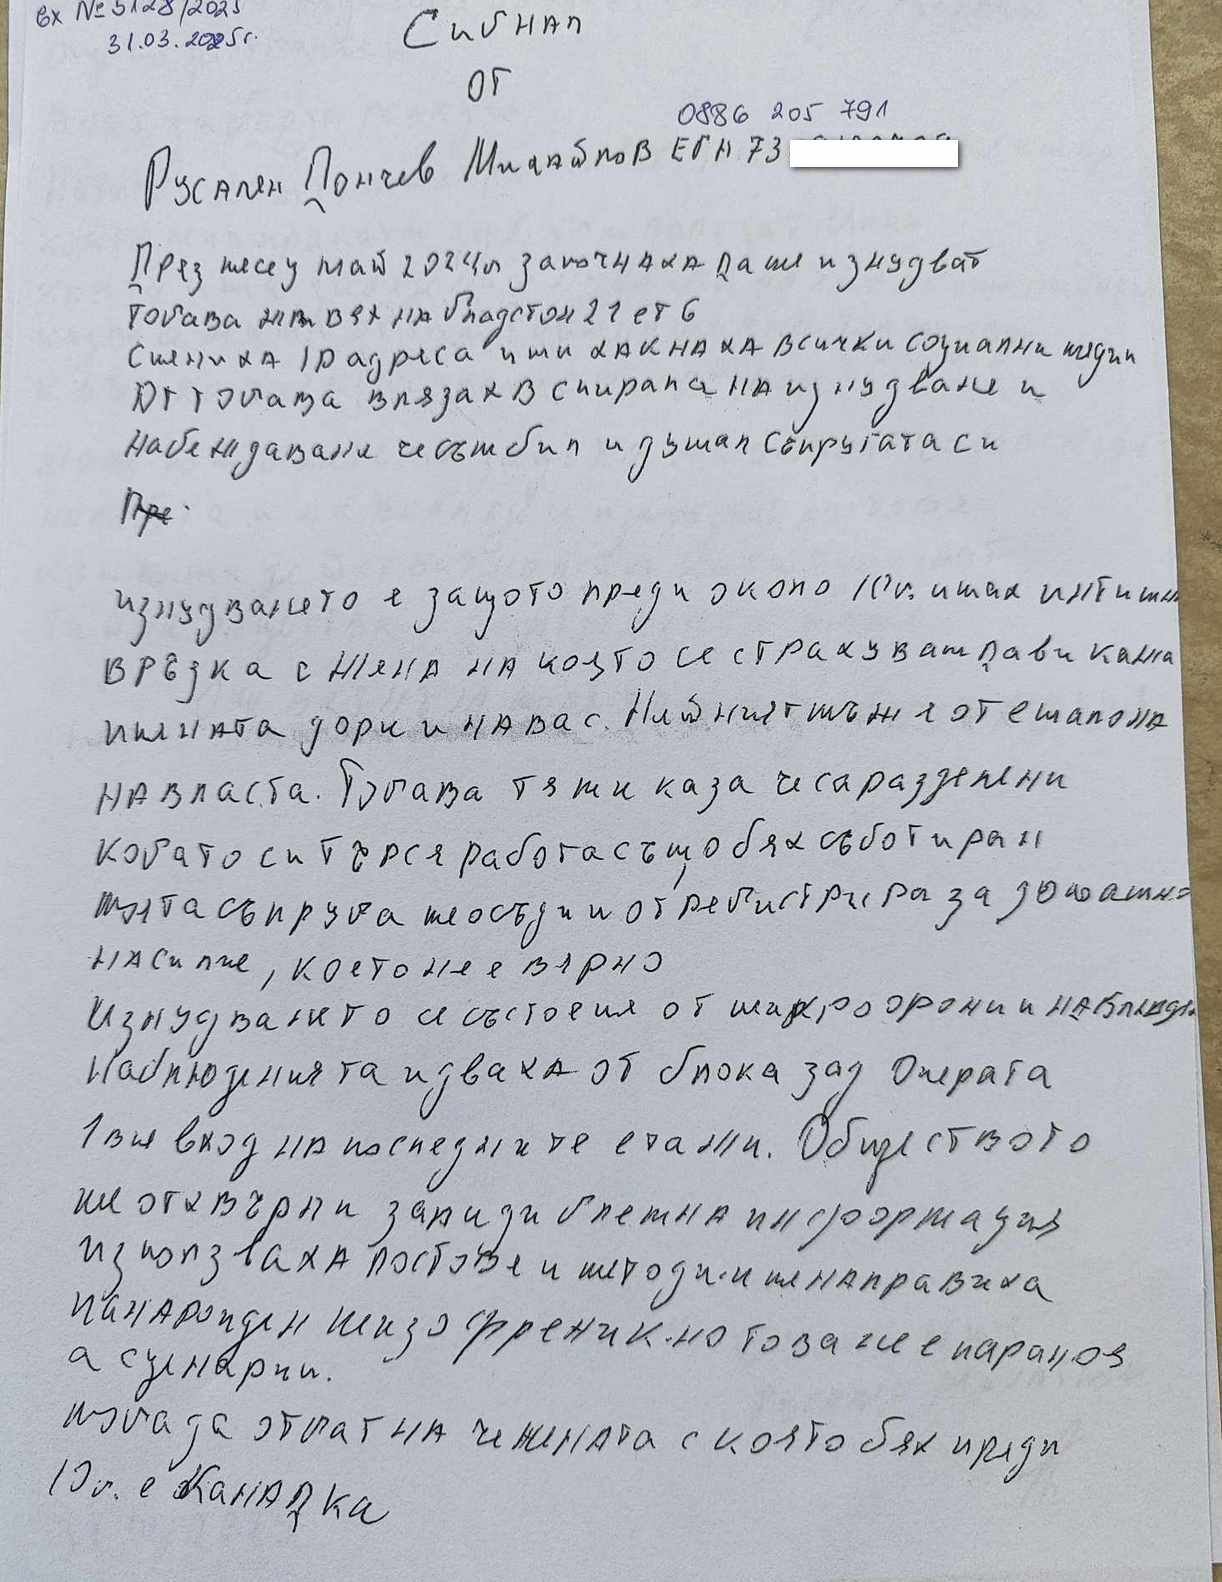 вх № 5128/2025
31.03.2025г.
Сигнал
от
0886 205 791
Русален Дончев Михайлов ЕГН 73
През месец май 2024г започнаха да ме изнудват
Тогава живях на Гладстон 21 ет 6
Смениха IP адреса и ми хакнаха всички социални медии
От тогава влязах в спирала на изнудване и
набеждаване че съм бил и душал съпругата си
Пре
изнудването е защото преди около 10г. имах интимн
връзка с жена на която се страхувам да ви кажа
имената дори и на вас. Нейният мъж е от ешалона
на власта. Тогава тя ми каза че са разделени
когато си търся работа също бях съботиран
моята съпруга ме осъди и от регистъра за домашно
насилие, което не е вярно
Изнудването се състоеше от микрофони и наблюде
Наблюденията идваха от блока зад Операта
1ви вход на последните етажи. Обществото
ме отхвърли заради близна информация
използваха постове и методи и ме направиха
параноиден шизофреник. но това не е параноя
а сценарии.
мога да отгатна че жената с която бях преди
10г. е Канадка